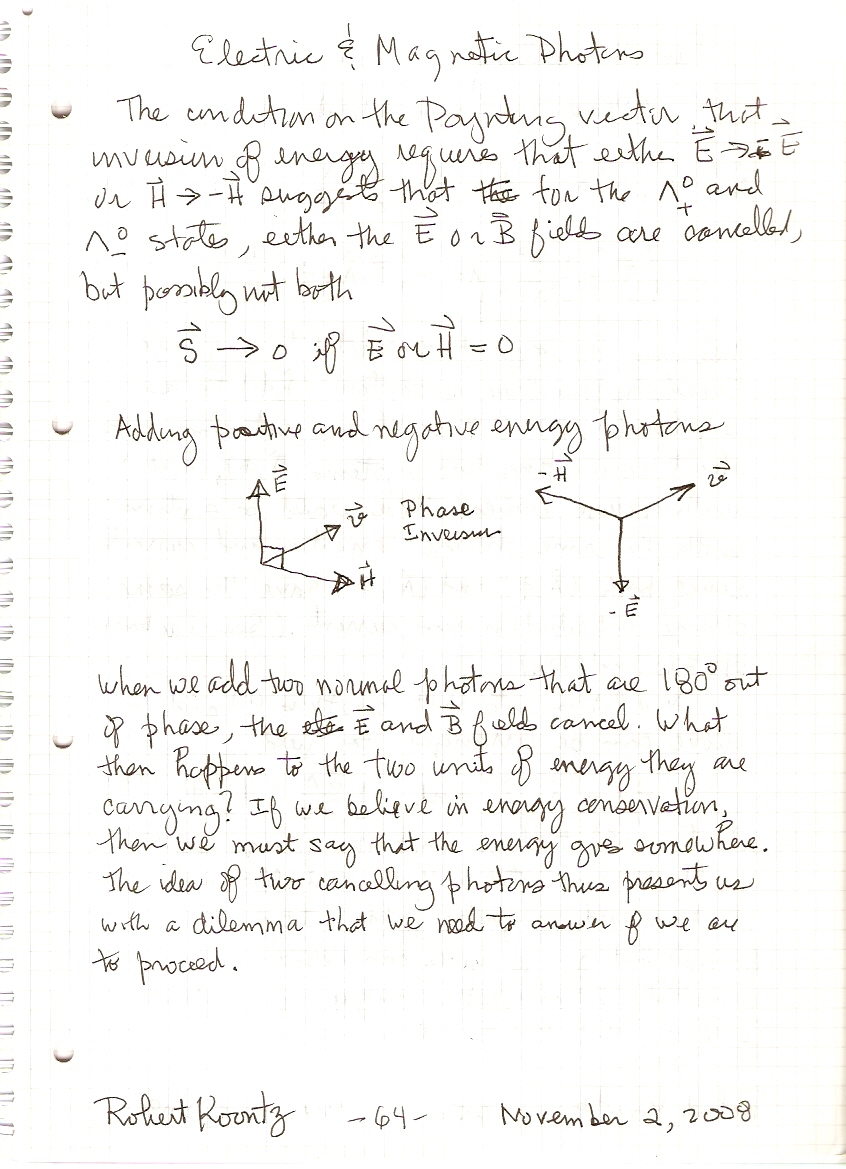 Electric & Magnetic Photons
The condition on the Poynting vector that
inversion of energy requires that either E⃗ → -E⃗
or H⃗ → -H⃗ suggests that the for the Λ⁰₊ and
Λ⁰₋ states, either the E⃗ or B⃗ fields are cancelled,
but possibly not both
S⃗ → 0 if E⃗ or H⃗ = 0
Adding positive and negative energy photons
E⃗
v⃗
H⃗
Phase
Inversion
-H⃗
v⃗
-E⃗
When we add two normal photons that are 180° out
of phase, the E⃗ and B⃗ fields cancel. What
then happens to the two units of energy they are
carrying? If we believe in energy conservation,
then we must say that the energy goes somewhere.
The idea of two cancelling photons thus present us
with a dilemma that we need to answer if we are
to proceed.
Robert Koontz -64- November 2, 2008